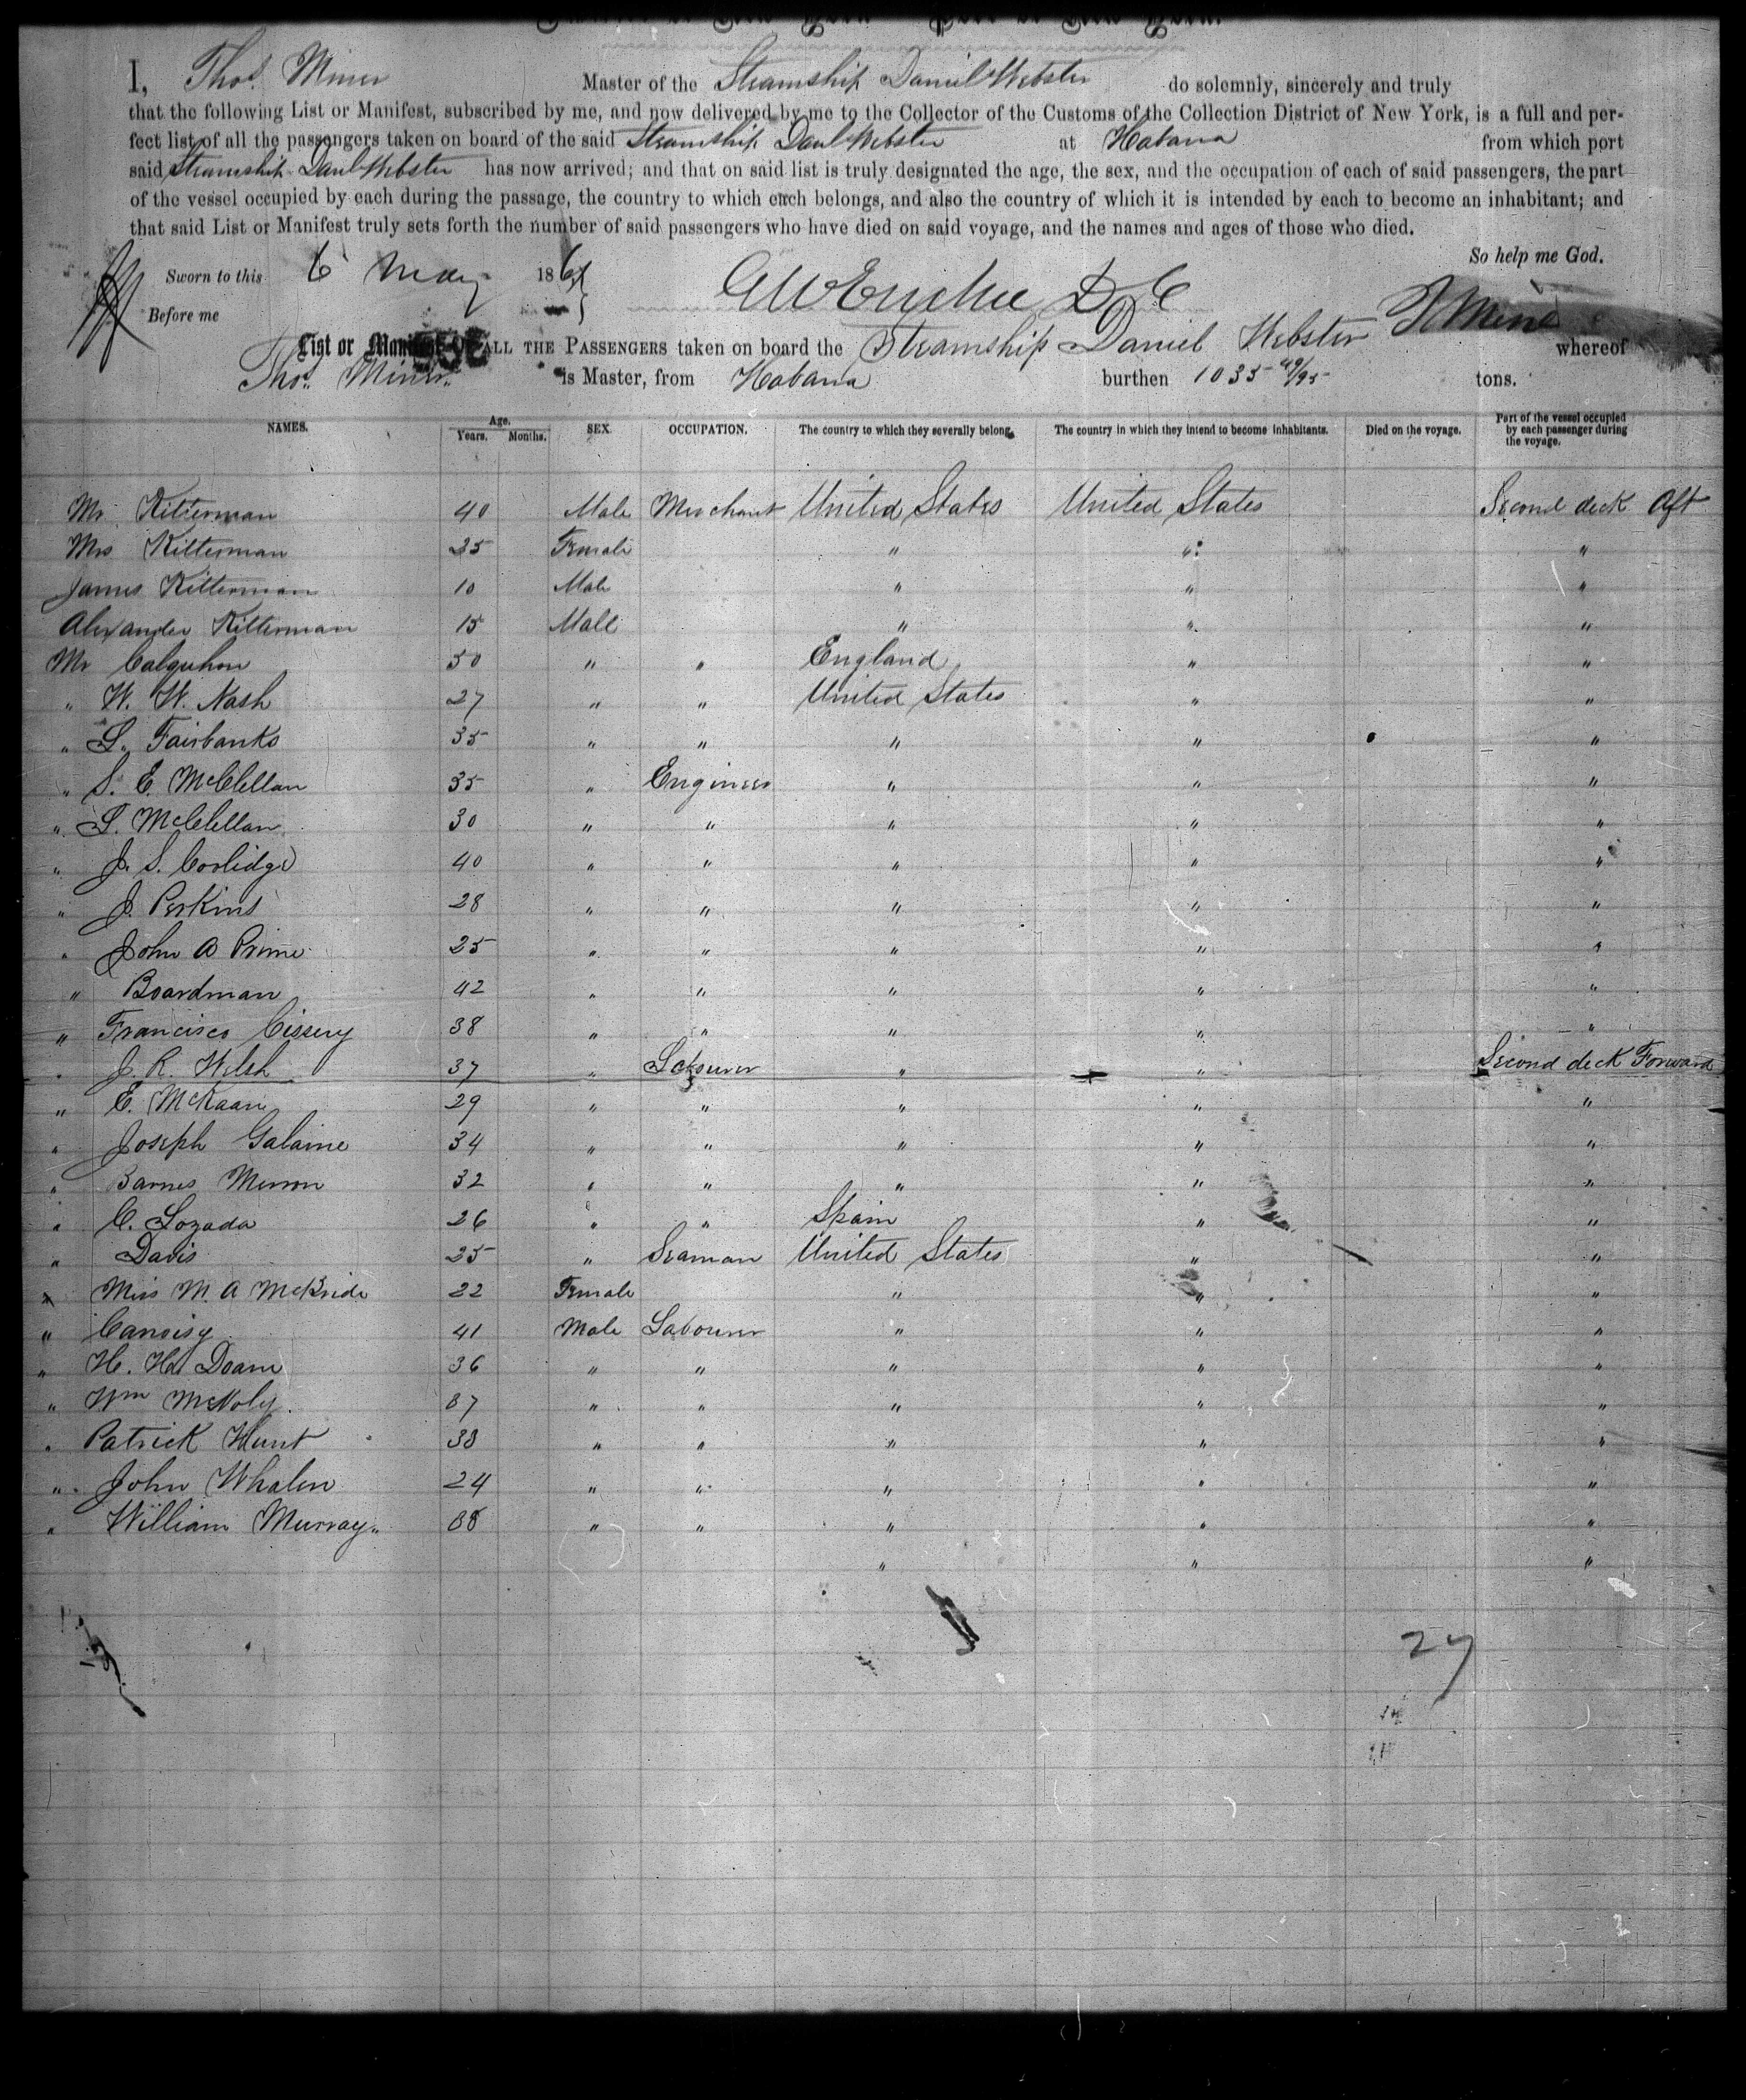 I, Thos. Miner Master of the Steamship Daniel Webster do solemnly, sincerely and truly
that the following List or Manifest, subscribed by me, and now delivered by me to the Collector of the Customs of the Collection District of New York, is a full and per-
fect list of all the passengers taken on board of the said Steamship Danl Webster at Habana from which port
said Steamship Danl Webster has now arrived; and that on said list is truly designated the age, the sex, and the occupation of each of said passengers, the part
of the vessel occupied by each during the passage, the country to which each belongs, and also the country of which it is intended by each to become an inhabitant; and
that said List or Manifest truly sets forth the number of said passengers who have died on said voyage, and the names and ages of those who died.
So help me God.
Sworn to this 6 May 186
Before me
T Miner
List or Manifest OF ALL THE PASSENGERS taken on board the Steamship Daniel Webster whereof
Thos. Miner is Master, from Habana burthen 1035 49/95 tons.
NAMES. Age. Years. Months. SEX. OCCUPATION. The country to which they severally belong. The country in which they intend to become inhabitants. Died on the voyage. Part of the vessel occupied by each passenger during the voyage.
Mr Kitterman 40 Male Merchant United States United States Second deck Aft
Mrs Kitterman 25 Female " " "
James Kitterman 10 Male " " "
Alexander Kitterman 15 Male " " "
Mr Calquhon 50 " " England " "
" W. W. Nash 27 " " United States " "
" S. Fairbanks 35 " " " " "
" S. E. McClellan 35 " Engineer " " "
" S. McClellan 30 " " " " "
" J. S. Coolidge 40 " " " " "
" J. Perkins 28 " " " " "
" John A Prime 25 " " " " "
" Boardman 42 " " " " "
" Francisco Cissery 38 " " " " "
" J. R. Welsh 37 " Labourer " " Second deck Forward
" E. McKaan 29 " " " " "
" Joseph Galaine 34 " " " " "
" Barnes Merron 32 " " " " "
" C. Lozada 26 " " Spain " "
" Davis 25 " Seaman United States " "
" Miss M. A McBride 22 Female " " "
" Canoisy 41 Male Labourer " " "
" H. H. Doane 36 " " " " "
" Wm McNoly. 37 " " " " "
" Patrick Hunt 38 " " " " "
" John Whalen 24 " " " " "
" William Murray 38 " " " " "
" " "
27